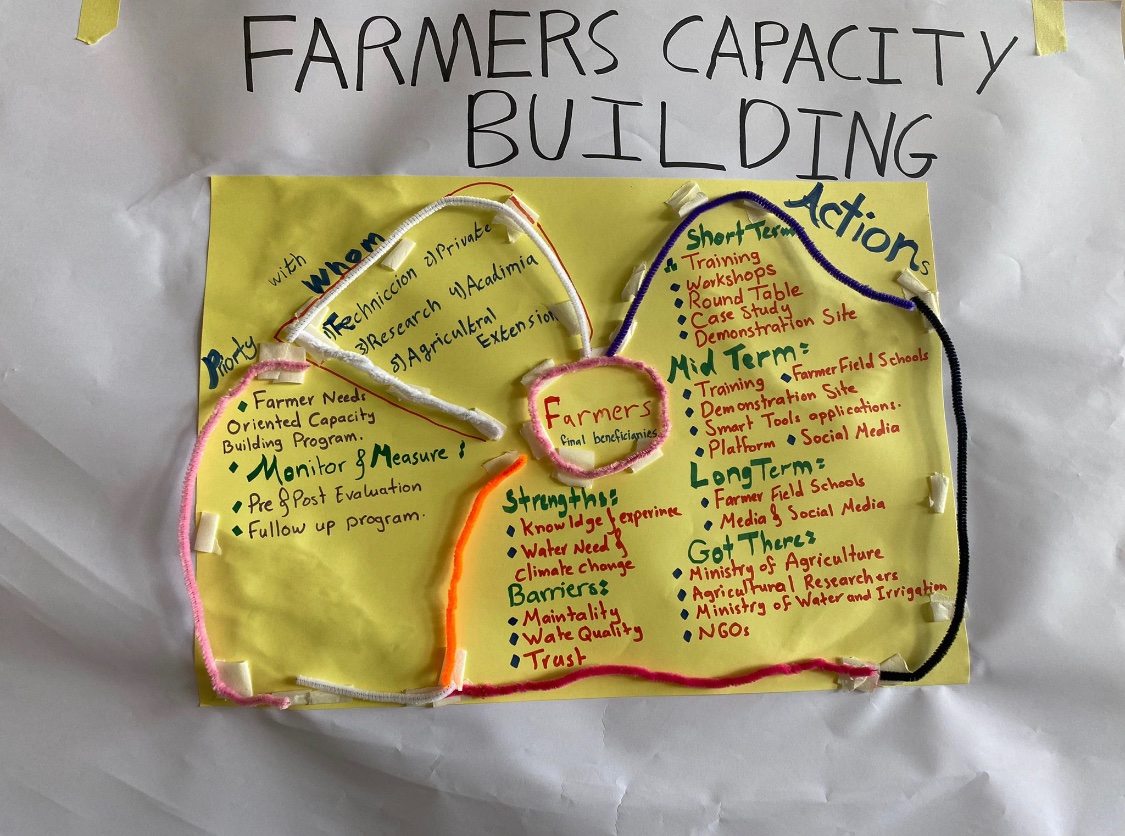 FARMERS CAPACITY
BUILDING
with
Whom
1) Techniccion 2) Private
3) Research 4) Acadimia
5) Agricultral
Extension
Piorty
Farmer Needs
Oriented Capacity
Building Program.
Monitor & Measure :
Pre & Post Evaluation
Fullow up program.
Farmers
final beneficianies
Strengths:
Knowldge & experinee
Water Need &
climate change
Barriers:
Maintality
Wate Quality
Trust
Actions
Short Term
Training
Workshops
Round Table
Case Study
Demonstration Site
Mid Term:
Training Farmer Field Schools
Demonstration Site
Smart Tools applications.
Platform Social Media
Long Term:
Farmer Field Schools
Media & Social Media
Got There:
Ministry of Agriculture
Agricultural Researchers
Ministry of Water and Irrigation
NGOs